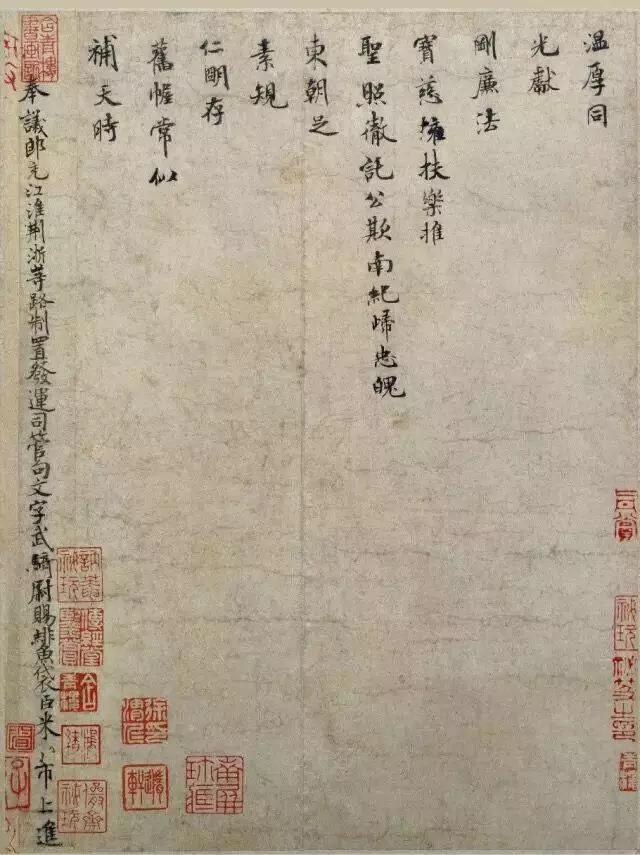 温厚同
光獻
剛廉法
寶慈擁扶樂推
聖照徹託公欺南紀歸忠魄
東朝足
素規
仁明存
舊幄常似
補天時
奉議郎充江淮荆浙等路制置發運司管句文字武騎尉賜緋魚袋臣米芾上進